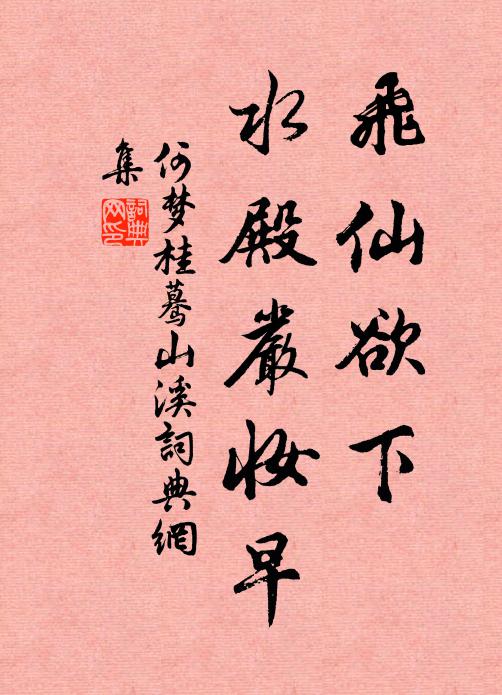 飛仙欲下
水殿嚴妝早
何梦桂蓦山溪詞典網
集
詞典
网印